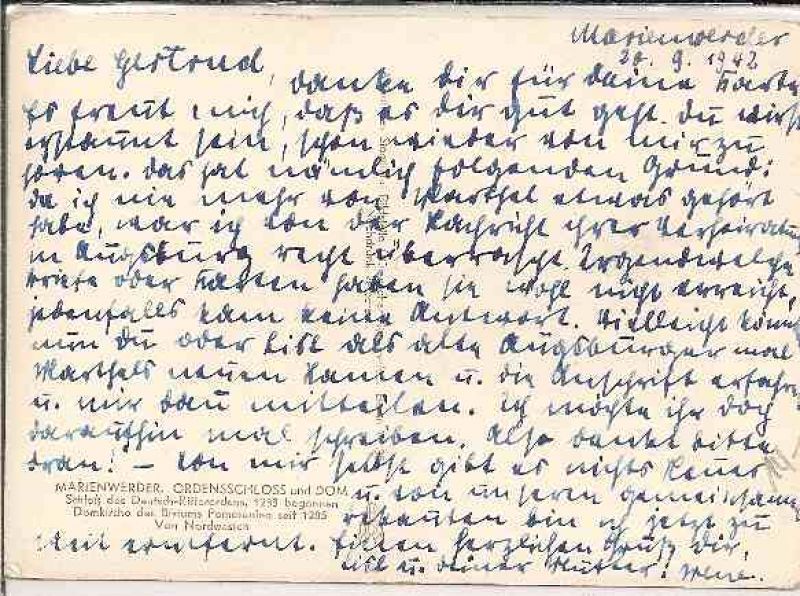 Marienwerder
20. 9. 1942
Liebe Gertrud,
danke dir für deine Karte
Es freut mich, daß es dir gut geht. Du wirst
erstaunt sein, schon wieder von mir zu
hören. Das hat nämlich folgenden Grund:
da ich nie mehr von Marthel etwas gehört
habe, war ich von der Nachricht ihrer Verheiratung
in Augsburg recht überrascht. Irgendwelche
Briefe oder Karten haben sie wohl nicht erreicht,
jedenfalls kam keine Antwort. Vielleicht könnt
nun du oder Lisl als alte Augsburger mal
Marthels neuen Namen u. die Anschrift erfahren
u. mir dan mitteilen. Ich möchte ihr doch
daraufhin mal schreiben. Also denkt bitte
dran! – Von mir selbst gibt es nichts Neues
MARIENWERDER. ORDENSSCHLOSS und DOM
Schloß des Deutsch-Ritterordens, 1233 begonnen
Domkirche des Bistums Pomesanien seit 1285
Von Nordwesten
u. von unseren gemeinsamen
Bekannten bin ich jetzt zu
weit entfernt. Einen herzlichen Gruß dir,
Lisl u. deiner Mutter!